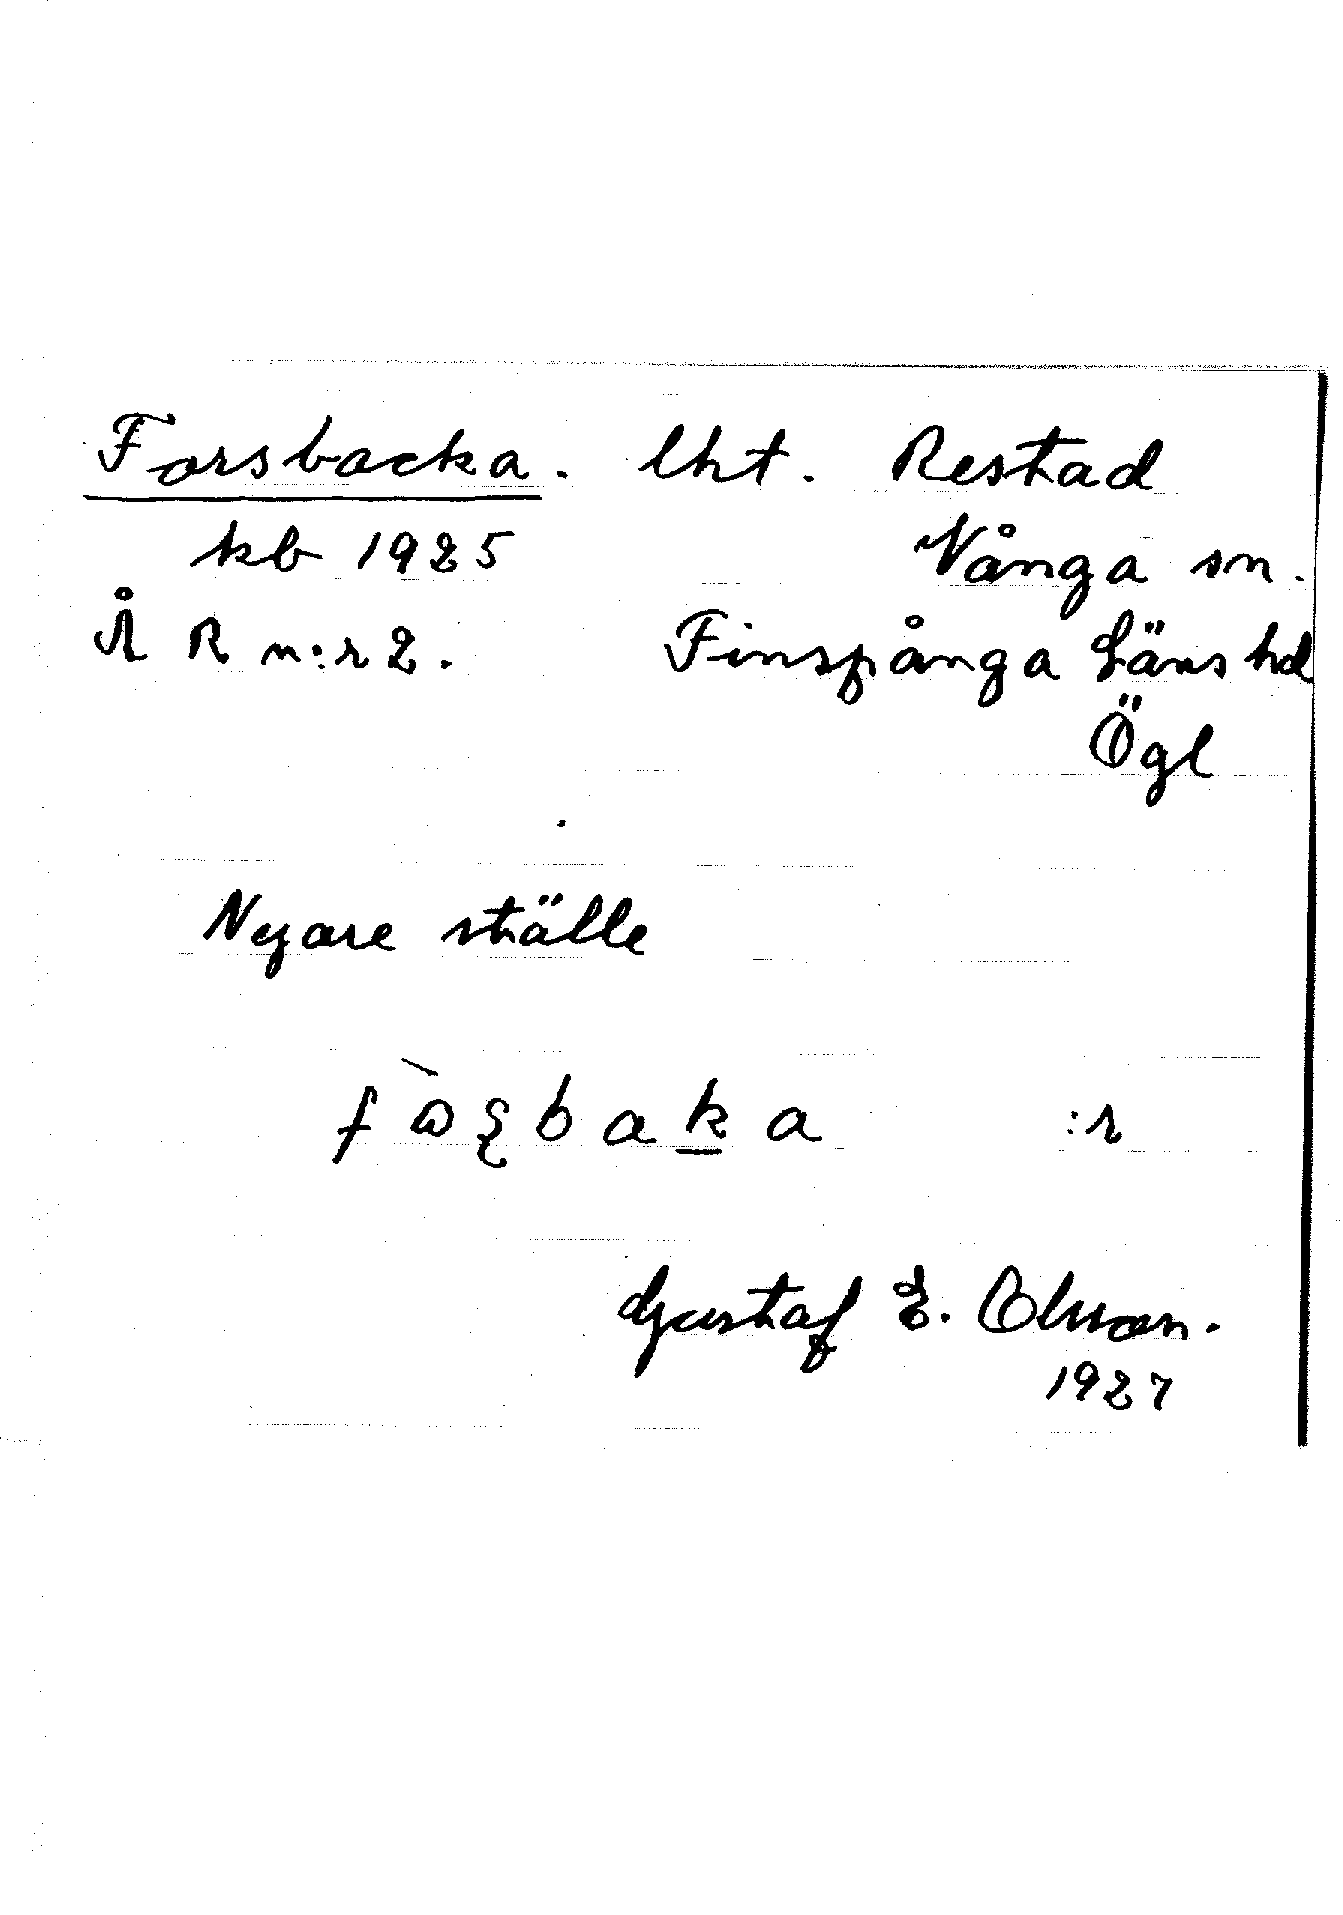 Forsbacka. lht. Restad
kb 1925 Vånga sn.
Å R n:r 2. Finspånga Läns hd
Ögl
Nyare ställe
:r
Gustaf E. Olsson.
1927